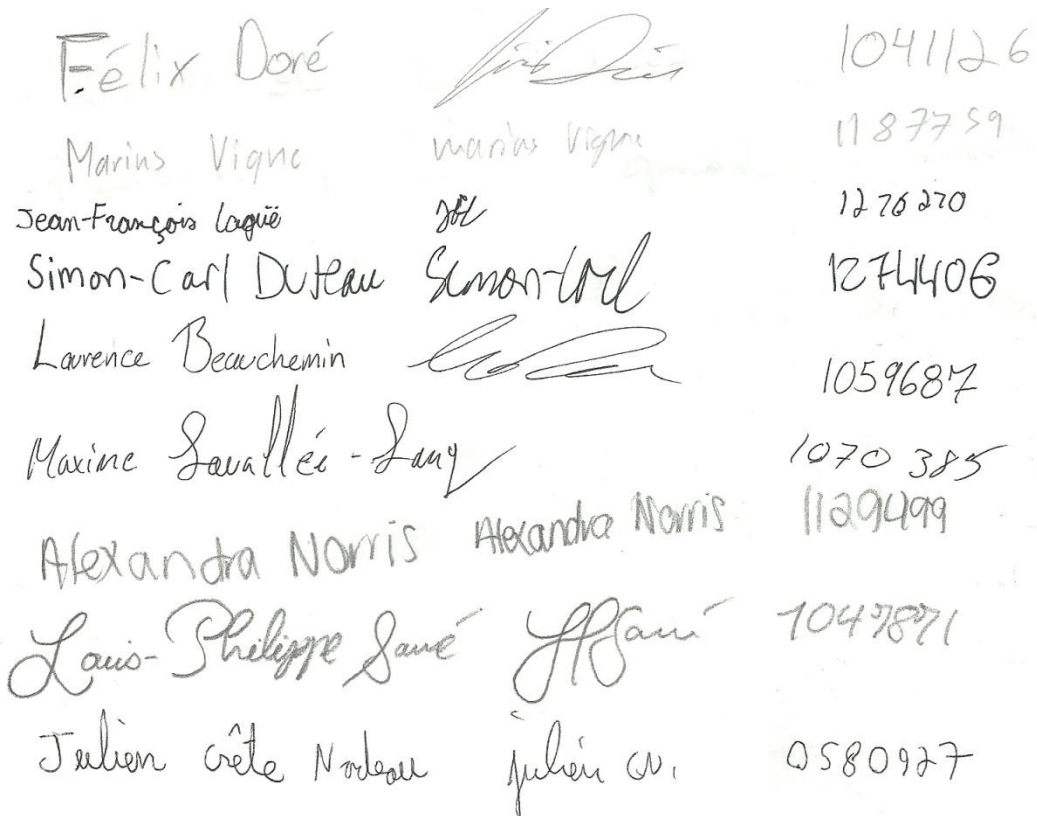 Félix Doré 1041126
Marius Vigne marius Vigne 1187759
Jean-François Laguë JFL 1276270
Simon-Carl Duteau Simon-Carl 1274406
Laurence Beauchemin 1059687
Maxime Lavallée-Lang 1070 385
Alexandra Norris Alexandra Norris 1129499
Louis-Philippe Sauvé LPSauvé 1047871
Julien Crête Nadeau julien CN. 0580927